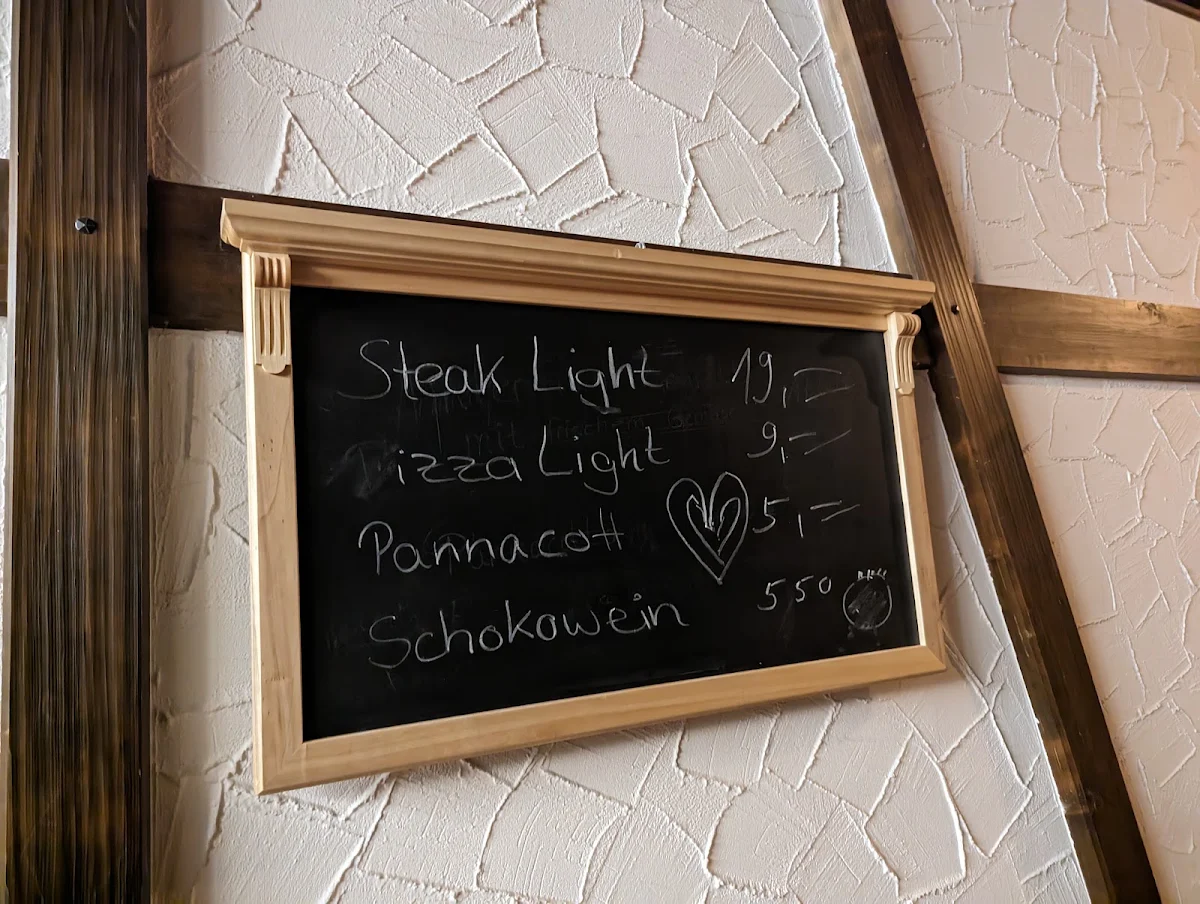 Steak Light 19,=
Pizza Light 9,=
Pannacott 5,=
Schokowein 550